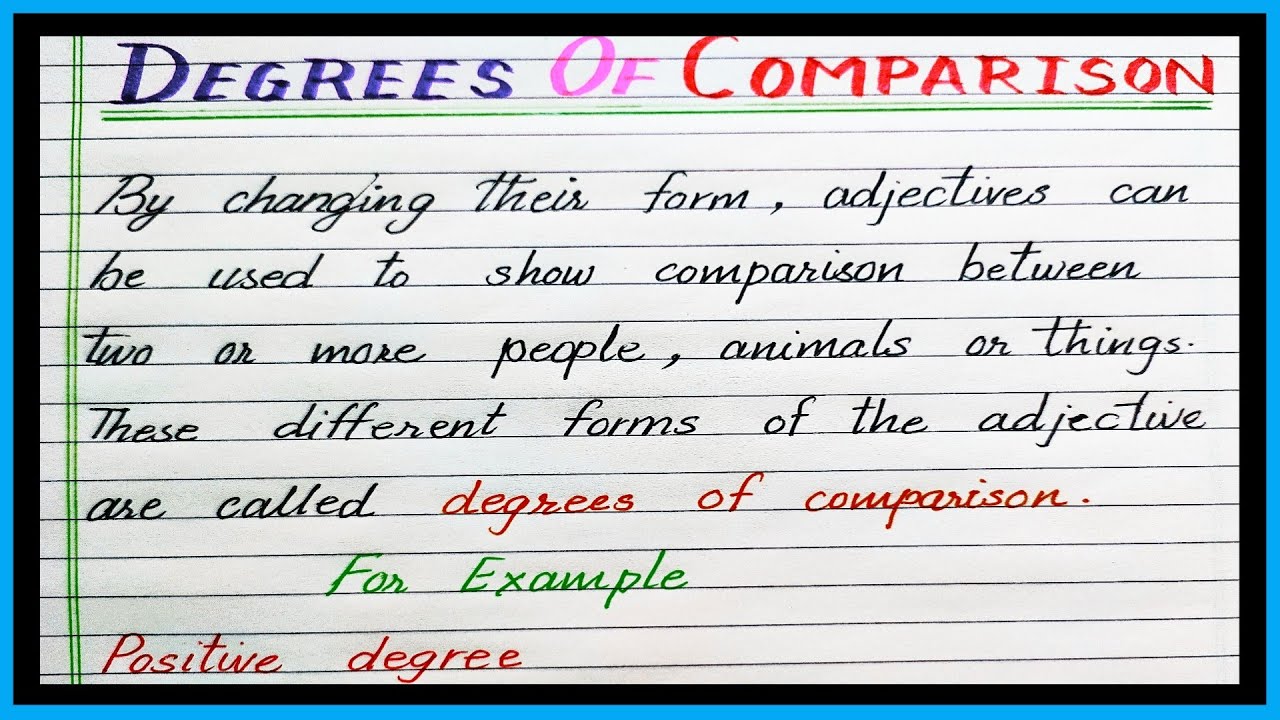 DEGREES OF COMPARISON
By changing their form, adjectives can
be used to show comparison between
two or more people, animals or things.
These different forms of the adjective
are called degrees of comparison.
For Example
Positive degree